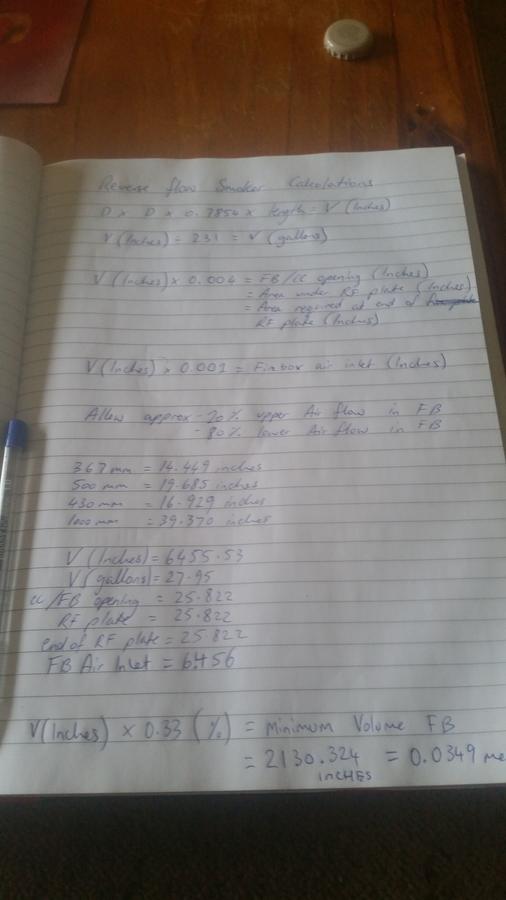 Reverse flow Smoker Calculations
D x D x 0.7854 x length = V (Inches)
V (Inches) ÷ 231 = V (gallons)
V (Inches) x 0.004 = FB/CC opening (Inches)
= Area under RF plate (Inches)
= Area required at end of
RF plate (Inches)
V (Inches) x 0.001 = Firebox air inlet (Inches)
Allow approx - 20% upper Air flow in FB
- 80% lower Air flow in FB
367 mm = 14.449 inches
500 mm = 19.685 inches
430 mm = 16.929 inches
1000 mm = 39.370 inches
V (Inches) = 6455.53
V (gallons) = 27.95
CC/FB opening = 25.822
RF plate = 25.822
end of RF plate = 25.822
FB Air Inlet = 6.456
V (Inches) x 0.33 (%) = Minimum Volume FB
= 2130.324 = 0.0349 me
INCHES